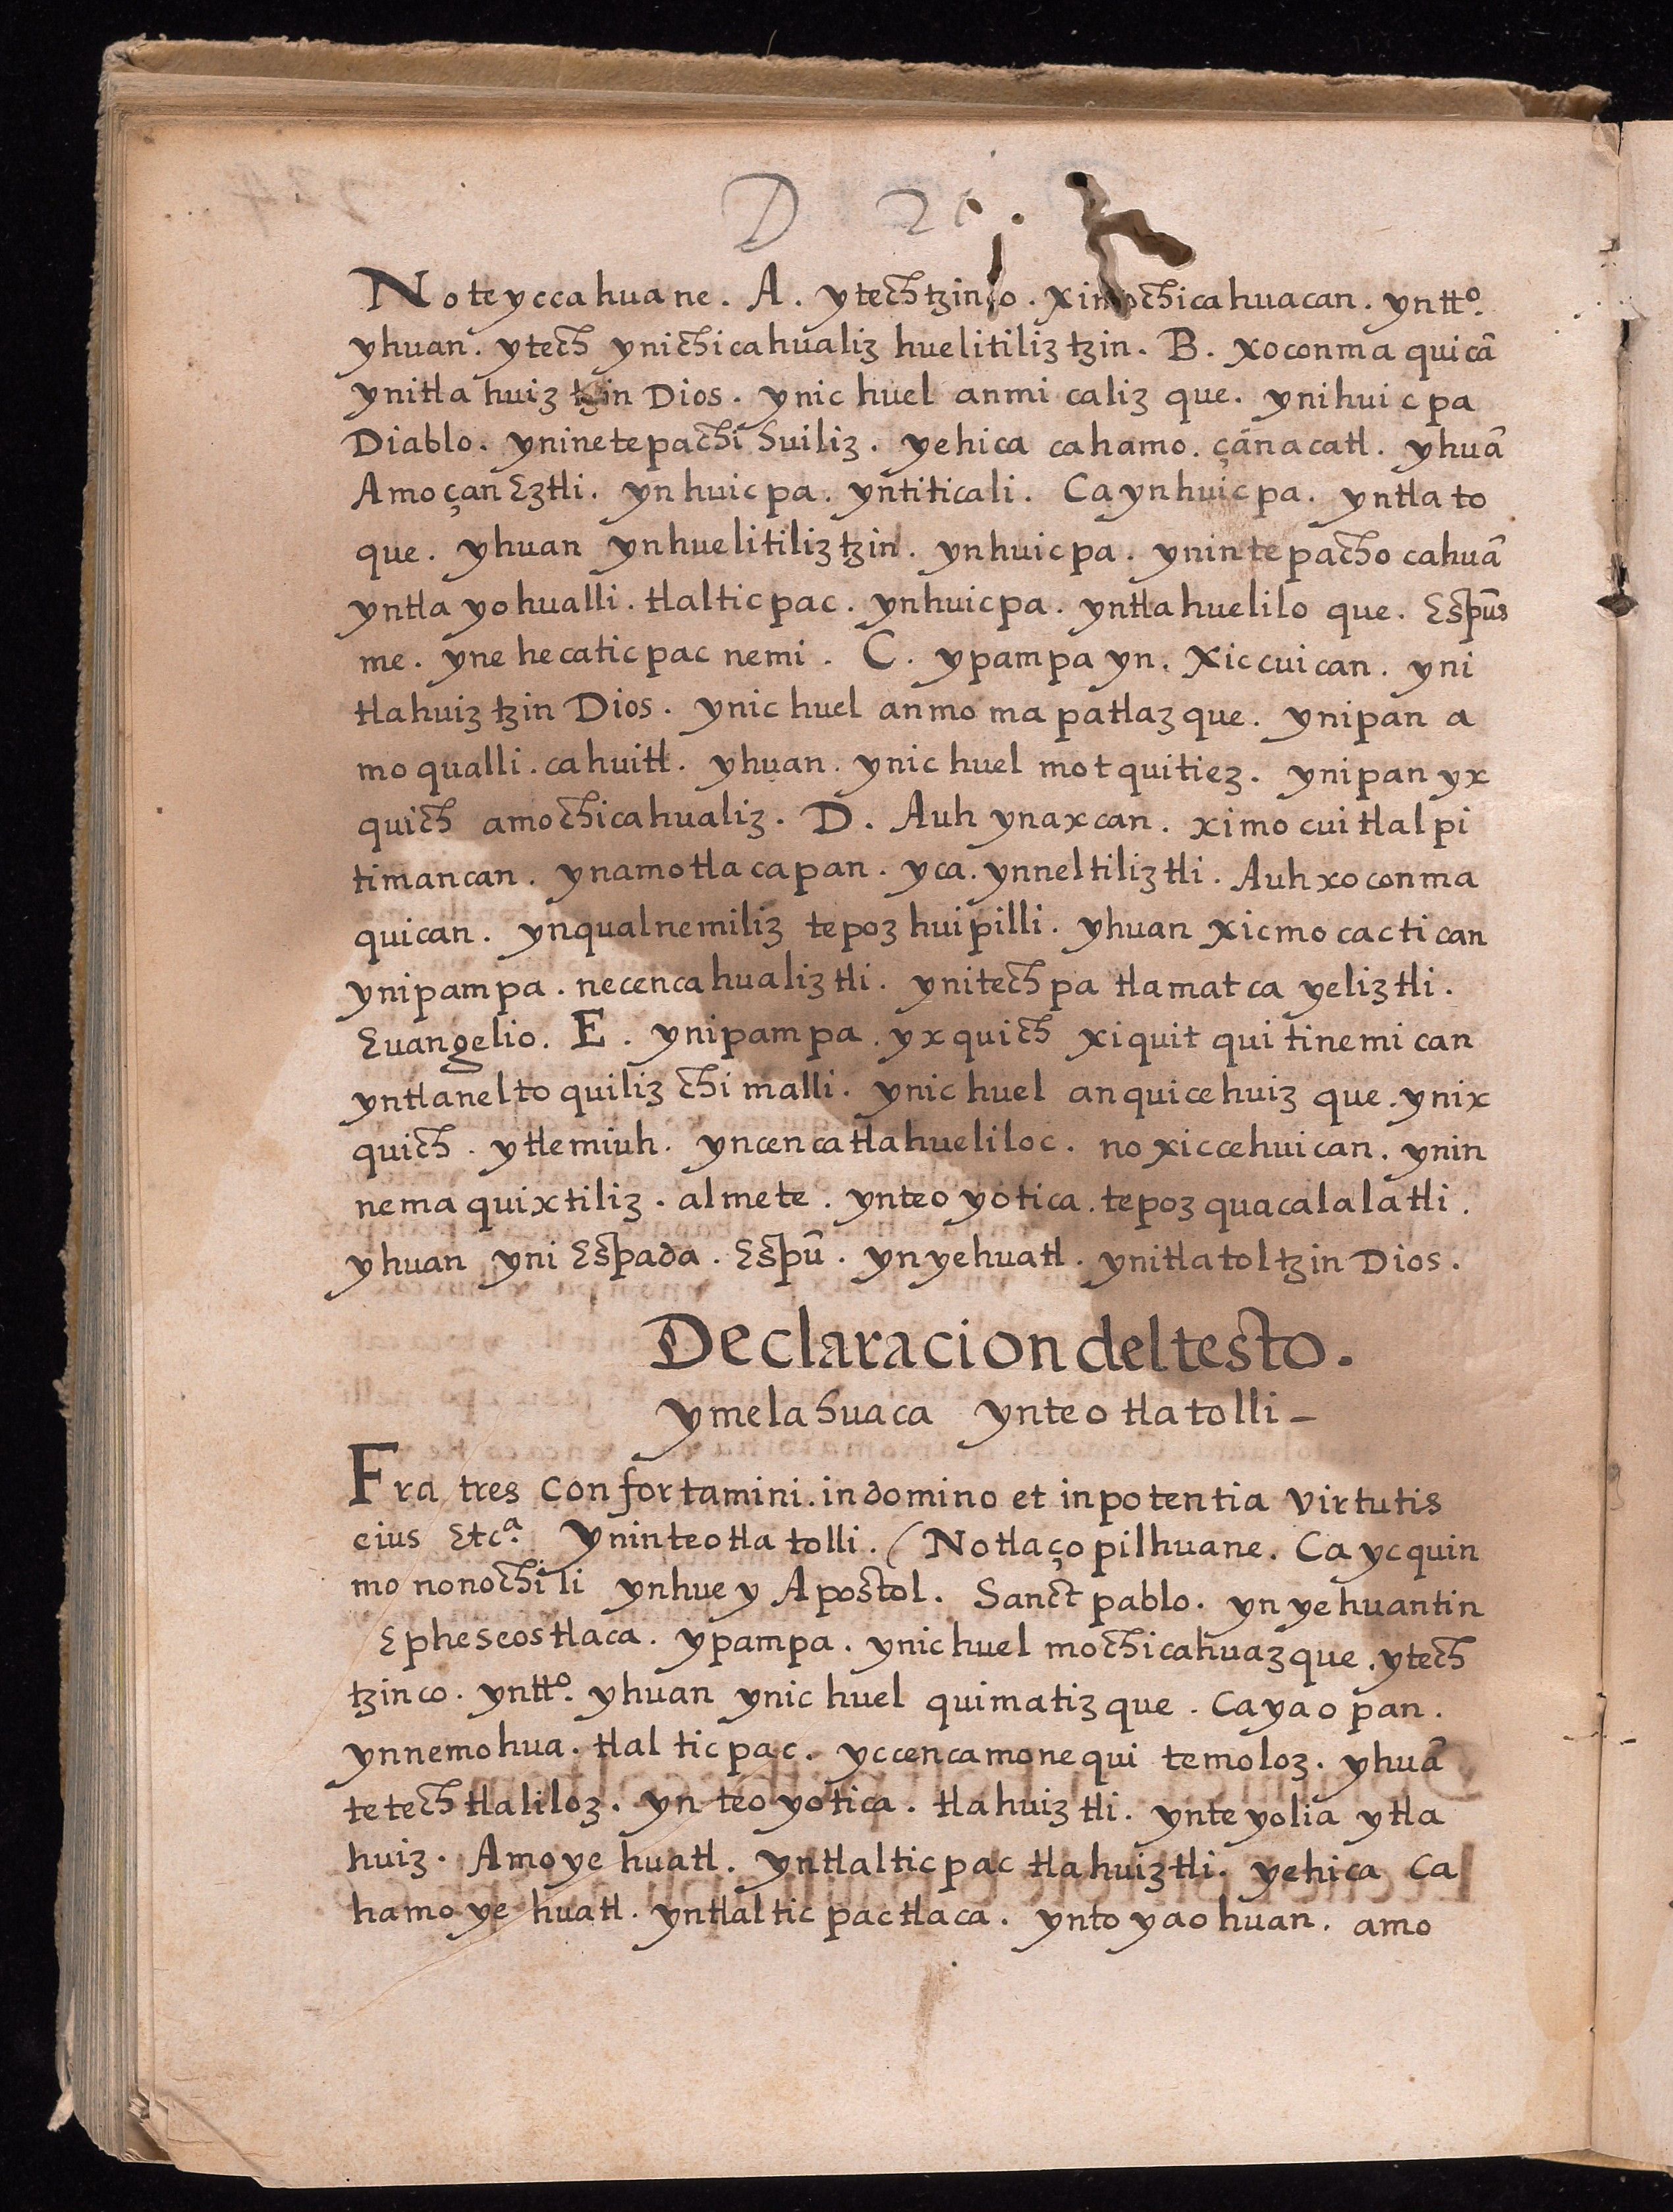 D 20
Noteyccahuane. A. ytechtzinco. ximochicahuacan. yntt.º
yhuan. ytech ynichicahualiz huelitiliztzin. B. xoconma quicā
ynitla huiz tzin Dios. ynic huel anmi caliz que. ynihuic pa
Diablo. yninetepachihuiliz. yehica cahamo. çānacatl. yhuā
Amoçan Eztli. ynhuicpa. yntiticali. Caynhuicpa. yntlato
que. yhuan ynhuelitiliztzin. ynhuicpa. ynintepacho cahuā
yntla yohualli. tlalticpac. ynhuicpa. yntlahuelilo que. Espūs
me. yne hecaticpac nemi. C. ypampa yn. Xiccuican. yni
tlahuiztzin Dios. ynic huel anmo ma patlazque. ynipan a
mo qualli. cahuitl. yhuan. ynic huel motquitiez. ynipan yx
quich amochicahualiz. D. Auh ynaxcan. ximo cuitlalpi
timancan. ynamotlacapan. yca. ynneltiliztli. Auh xoconma
quican. ynqualnemiliz tepoz huipilli. yhuan xicmo cactican
ynipampa. necencahualiztli. ynitechpa tlamatca yeliztli.
Euangelio. E. ynipampa. yxquich xiquit qui tinemi can
yntlaneltoquiliz chimalli. ynic huel anquicehuiz que. ynix
quich. ytlemiuh. yncencatlahueliloc. no xiccehuican. ynin
nema quixtiliz. almete. ynteo yotica. tepoz quacalalatli.
yhuan yni Espada. Espū. ynyehuatl. ynitlatoltzin Dios.
Declaracion deltesto.
ymelahuaca ynteotlatolli
Fra tres confortamini. indomino et inpotentia virtutis
eius Etc.ª yninteotla tolli. (Notlaçopilhuane. Ca yc quin
mo nonochili ynhuey Apostol. Sanct pablo. yn yehuantin
Epheseostlaca. ypampa. ynic huel mochicahuazque. ytech
tzinco. yntt.º yhuan ynic huel quimatizque. cayaopan.
ynnemohua. tlalticpac. yccencamonequi temoloz. yhuā
tetechtlaliloz. yn teoyotica. tlahuiztli. ynteyolia ytla
huiz. Amoye huatl. yntlalticpac tlahuiztli. yehica ca
hamo ye huatl. yntlaltic pactlaca. ynto yaohuan. amo